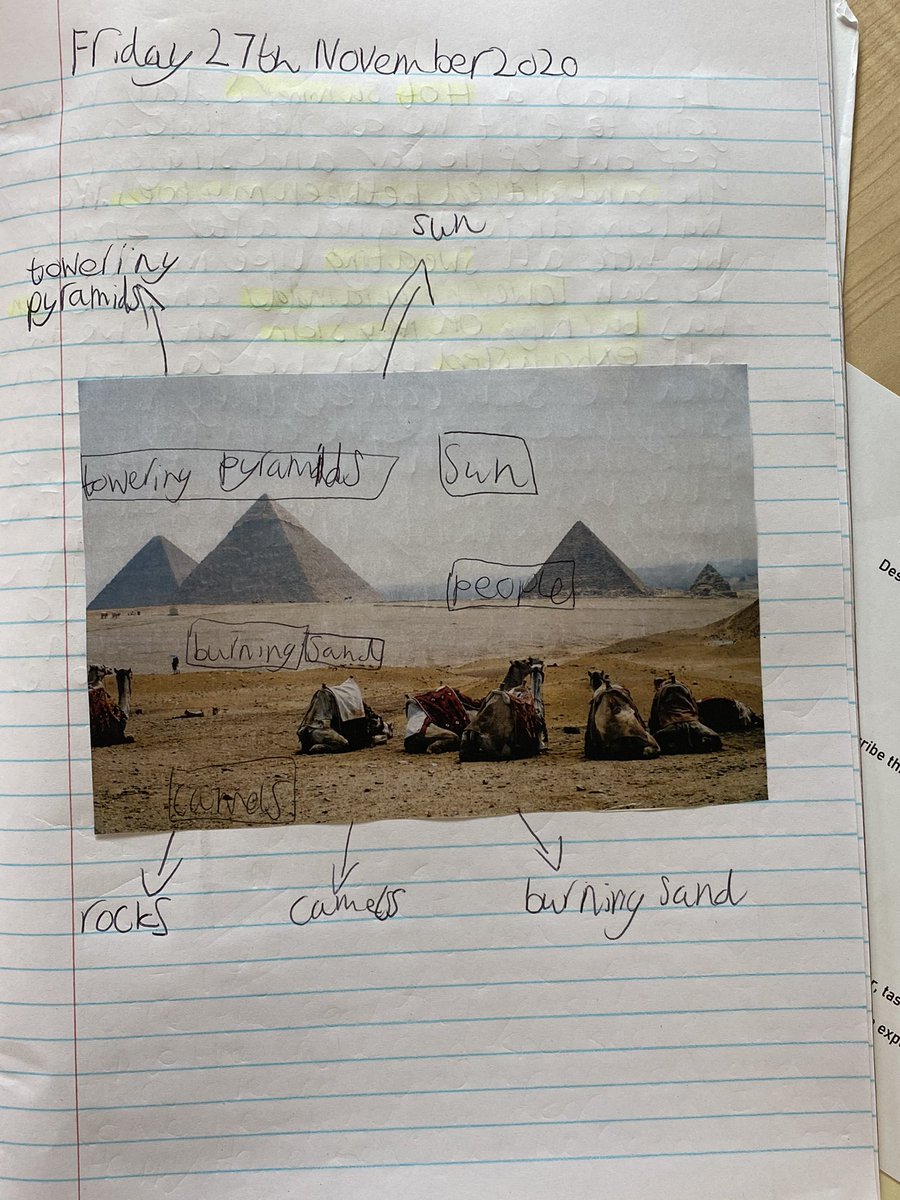 Friday 27th November 2020
sun
towering
pyramids
towering pyramids
sun
people
burning sand
camels
rocks
camels
burning sand
Des
ribe th
r, tas
exp